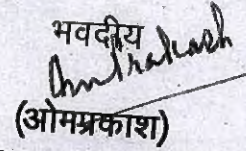 भवदीय
Omprakash
(ओमप्रकाश)